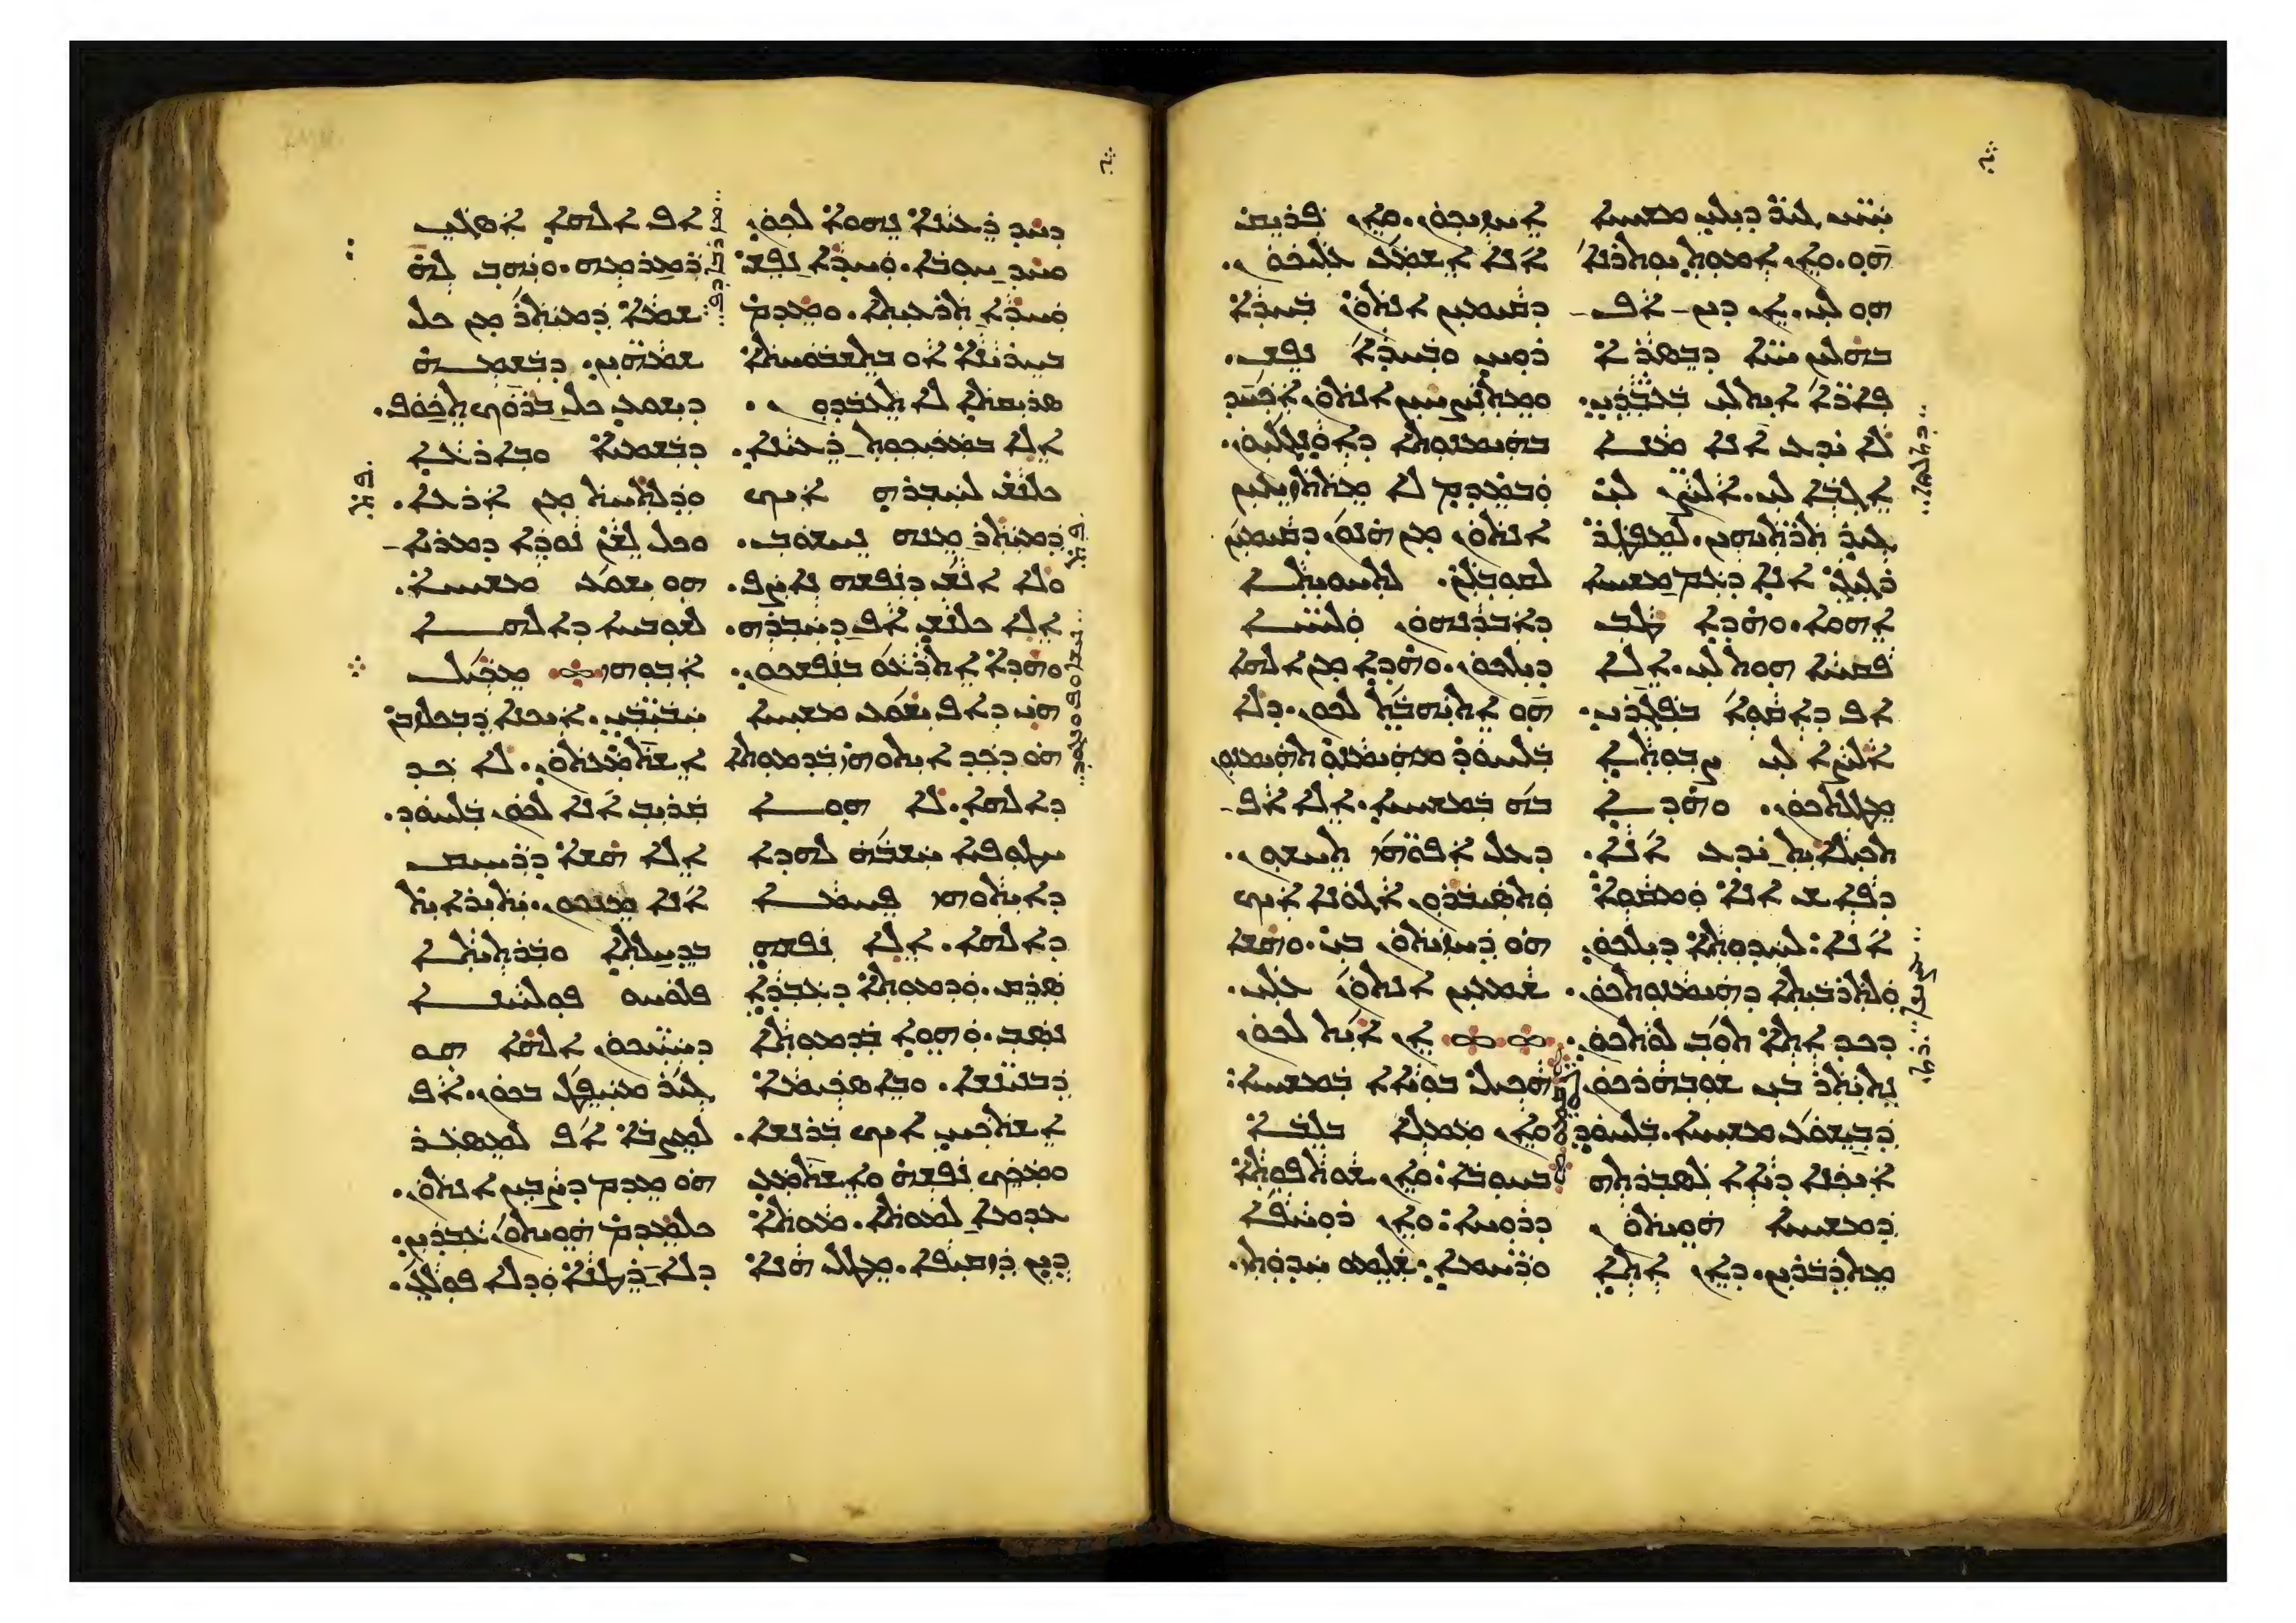 ܚܝܝ ܓܝܪ ܕܝܠܝ ܡܫܝܚܐ
ܗܘ. ܘܐܢ ܐܡܘܬ ܝܘܬܪܢܐ
ܗܘ ܠܝ. ܐܢ ܕܝܢ ܐܦ
ܒܗܠܝܢ ܚܝܐ ܕܒܣܪܐ
ܦܐܪܐ ܐܝܬ ܠܝ ܒܥܒܕܝ.
ܠܐ ܝܕܥ ܐܢܐ ܡܢܐ
ܐܓܒܐ ܠܝ. ܐܠܨܢ ܠܝ
ܓܝܪ ܬܪܬܝܗܝܢ. ܠܡܦܛܪ
ܪܓܝܓ ܐܢܐ ܕܥܡ ܡܫܝܚܐ
ܐܗܘܐ. ܘܗܕܐ ܛܒ
ܦܩܚܐ ܗܘܬ ܠܝ. ܐܠܐ
ܐܦ ܕܐܩܘܐ ܒܦܓܪܝ.
ܐܠܨܐ ܠܝ ܨܒܘܬܐ
ܡܛܠܬܟܘܢ. ܘܗܕܐ
ܬܟܝܠܐܝܬ ܝܕܥ ܐܢܐ.
ܕܦܐܫ ܐܢܐ ܘܡܩܘܐ
ܐܢܐ: ܠܚܕܘܬܐ ܕܝܠܟܘܢ
ܘܠܬܪܒܝܬܐ ܕܗܝܡܢܘܬܟܘܢ.
ܕܟܕ ܐܬܐ ܬܘܒ ܠܘܬܟܘܢ.
ܢܬܝܬܪ ܒܝ ܫܘܒܗܪܟܘܢ
ܕܒܝܫܘܥ ܡܫܝܚܐ. ܒܠܚܘܕ
ܐܝܟܢܐ ܕܝܐܐ ܠܣܒܪܬܗ
ܕܡܫܝܚܐ ܗܘܝܬܘܢ
ܡܬܕܒܪܝܢ. ܕܐܢ ܐܬܐ
ܐܚܙܝܟܘܢ. ܘܐܢ ܦܪܝܩ
ܐܢܐ ܐܫܡܥ ܥܠܝܟܘܢ.
ܕܩܝܡܝܢ ܐܢܬܘܢ ܒܚܕܐ
ܪܘܚ ܘܒܚܕܐ ܢܦܫ.
ܘܡܬܢܨܚܝܢ ܐܢܬܘܢ ܐܟܚܕ
ܒܗܝܡܢܘܬܐ ܕܐܘܢܓܠܝܘܢ.
ܘܒܡܕܡ ܠܐ ܡܬܬܙܝܥܝܢ
ܐܢܬܘܢ ܡܢ ܗܢܘܢ ܕܩܝܡܝܢ
ܠܘܩܒܠܢ. ܠܬܚܘܝܬܐ
ܕܐܒܕܢܗܘܢ ܘܠܚܝܐ
ܕܝܠܟܘܢ. ܘܗܕܐ ܡܢ ܐܠܗܐ
ܗܘ ܐܬܝܗܒܬ ܠܟܘܢ. ܕܠܐ
ܒܠܚܘܕ ܡܗܝܡܢܘ ܬܗܝܡܢܘܢ
ܒܗ ܒܡܫܝܚܐ. ܐܠܐ ܐܦ
ܕܥܠ ܐܦܘܗܝ ܬܚܫܘܢ.
ܘܬܣܝܒܪܘܢ ܐܓܘܢܐ ܐܝܟ
ܗܘ ܕܚܙܝܬܘܢ ܒܝ. ܘܗܫܐ
ܫܡܥܝܢ ܐܢܬܘܢ ܥܠܝ.
ܐܢ ܐܝܬ ܠܟܘܢ
ܗܟܝܠ ܒܘܝܐܐ ܒܡܫܝܚܐ:
ܘܐܢ ܡܡܠܐ ܒܠܒܐ
ܒܚܘܒܐ: ܘܐܢ ܫܘܬܦܘܬܐ
ܕܪܘܚܐ: ܘܐܢ ܪܘܚܦܐ
ܘܪܚܡܐ: ܫܠܡܘ ܚܕܘܬܝ.
ܕܚܕ ܪܥܝܢܐ ܢܗܘܐ ܠܟܘܢ
ܘܚܕ ܚܘܒܐ. ܘܚܕܐ ܢܦܫ
ܘܚܕܐ ܬܪܥܝܬܐ. ܘܡܕܡ
ܒܚܪܝܢܐ ܐܘ ܒܬܫܒܘܚܬܐ
ܣܪܝܩܬܐ ܠܐ ܬܥܒܕܘܢ.
ܐܠܐ ܒܡܟܝܟܘܬ ܪܥܝܢܐ.
ܟܠܢܫ ܠܚܒܪܗ ܐܝܟ
ܕܡܝܬܪ ܡܢܗ ܢܚܫܘܒ.
ܘܠܐ ܐܢܫ ܕܢܦܫܗ ܢܐܨܦ.
ܐܠܐ ܟܠܢܫ ܐܦ ܕܚܒܪܗ.
ܘܗܕܐ ܐܬܪܥܘ ܒܢܦܫܟܘܢ.
ܗܝ ܕܐܦ ܝܫܘܥ ܡܫܝܚܐ
ܗܘ ܕܟܕ ܐܝܬܘܗܝ ܒܕܡܘܬܐ
ܕܐܠܗܐ. ܠܐ ܗܘܐ
ܚܛܘܦܝܐ ܚܫܒܗ ܠܗܕܐ
ܕܐܝܬܘܗܝ ܦܚܡܐ
ܕܐܠܗܐ. ܐܠܐ ܢܦܫܗ
ܣܪܩ. ܘܕܡܘܬܐ ܕܥܒܕܐ
ܢܣܒ. ܘܗܘܐ ܒܕܡܘܬܐ
ܕܒܢܝܢܫܐ. ܘܒܐܣܟܝܡܐ
ܐܫܬܟܚ ܐܝܟ ܒܪܢܫܐ.
ܘܡܟܟ ܢܦܫܗ ܘܐܫܬܡܥ
ܥܕܡܐ ܠܡܘܬܐ. ܡܘܬܐ
ܕܝܢ ܕܙܩܝܦܐ. ܡܛܠ ܗܢܐ
ܐܦ ܐܠܗܐ ܐܣܓܝ
ܪܡܪܡܗ. ܘܝܗܒ ܠܗ
ܫܡܐ ܕܡܝܬܪ ܡܢ ܟܠ
ܫܡܗܝܢ. ܕܒܫܡܗ
ܕܝܫܘܥ ܟܠ ܒܪܘܟ ܬܟܘܦ.
ܕܒܫܡܝܐ ܘܒܐܪܥܐ
ܘܕܠܬܚܬ ܡܢ ܐܪܥܐ.
ܘܟܠ ܠܫܢ ܢܘܕܐ ܕܡܪܝܐ
ܗܘ ܝܫܘܥ ܡܫܝܚܐ.
ܠܫܘܒܚܐ ܕܐܠܗܐ
ܐܒܘܗܝ ܡܟܝܠ
ܚܒܝܒܝ. ܐܝܟܢܐ ܕܒܟܠܙܒܢ
ܐܫܬܡܥܬܘܢ. ܠܐ ܟܕ
ܩܪܝܒ ܐܢܐ ܠܟܘܢ ܒܠܚܘܕ.
ܐܠܐ ܗܫܐ ܕܪܚܝܩ
ܐܢܐ ܡܢܟܘܢ. ܝܬܝܪܐܝܬ
ܒܕܚܠܬܐ ܘܒܪܬܝܬܐ
ܦܠܘܚܘ ܦܘܠܚܢܐ
ܕܚܝܝܟܘܢ. ܐܠܗܐ ܗܘ
ܓܝܪ ܡܚܦܛ ܒܟܘܢ. ܐܦ
ܠܡܨܒܐ ܐܦ ܠܡܣܥܪ
ܗܘ ܡܕܡ ܕܨܒܝܢ ܐܢܬܘܢ.
ܟܠܡܕܡ ܗܘܝܬܘܢ ܥܒܕܝܢ.
ܕܠܐ ܪܛܢܐ ܘܕܠܐ ܦܘܠܓ.